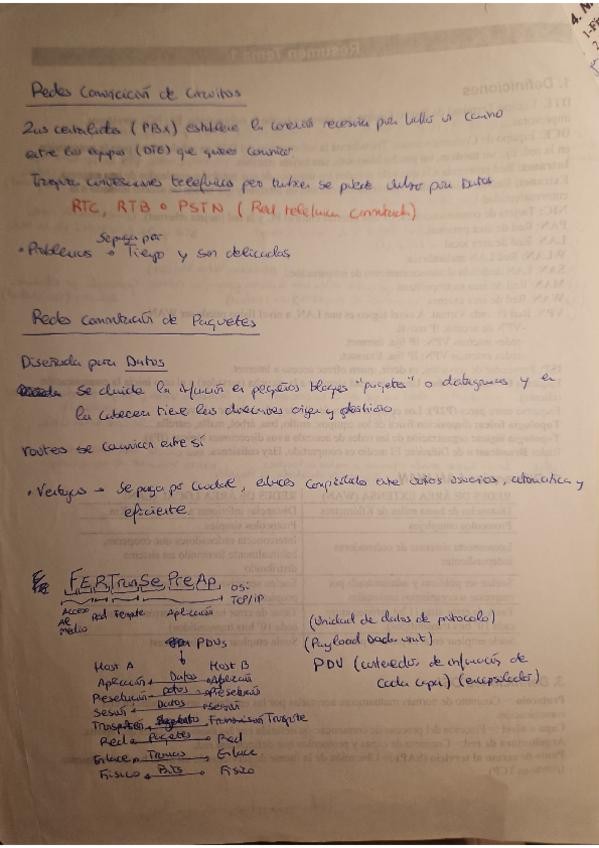 Redes Conmutación de Circuitos
Las centralitas (PBX) establece la conexión necesaria para hallar un camino
entre los equipos (DTE) que quieren comunicar
conversaciones telefónicas pero también se puede utilizar para Datos
RTC, RTB o PSTN ( Red telefónica conmutada)
Se paga por
• Problemas → Tiempo y son delicadas
Redes Conmutación de Paquetes
Diseñada para Datos
Se divide la información en pequeños bloques "paquetes" o datagramas y en
la cabecera tiene las direcciones origen y destino
routers se comunican entre sí
• Ventajas → Se paga por cantidad, enlaces compartidos entre varios usuarios, automática y
eficiente
FERTranSePreAp OSI
TCP/IP
Acceso Red Transporte Aplicación
Al
Medio
(Unidad de datos de protocolo)
PDUs
(Payload Data unit)
Host A Host B
PDU (contenedor de información de
cada capa) (encapsulador)
Aplicación Datos Aplicación
Presentación Datos Presentación
Sesión Datos Sesión
Transporte Segmento Transporte
Red Paquetes Red
Enlace Tramas Enlace
Físico Bits Físico